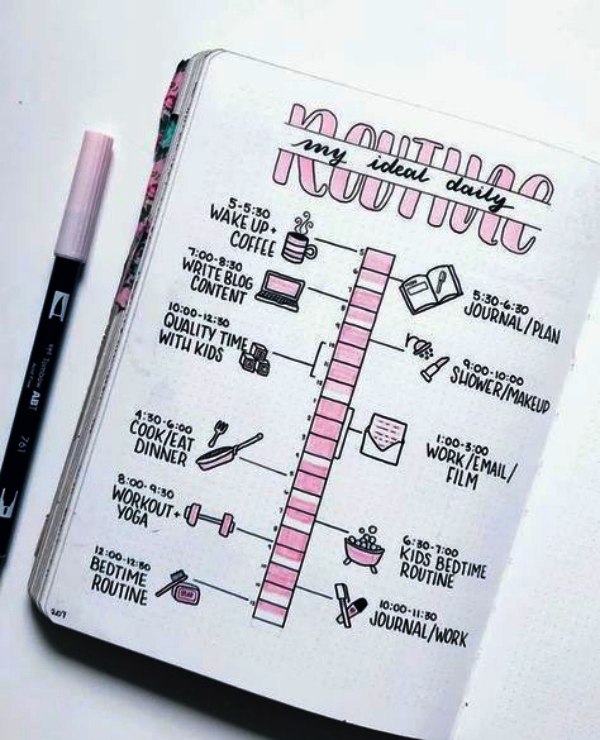 ROUTINE
my ideal daily
5-5:30
WAKE UP+
COFFEE
5:30-6:30
JOURNAL/PLAN
7:00-8:30
WRITE BLOG
CONTENT
9:00-10:00
SHOWER/MAKEUP
10:00-12:30
QUALITY TIME
WITH KIDS
1:00-3:00
WORK/EMAIL/
FILM
4:30-6:00
COOK/EAT
DINNER
6:30-7:00
KIDS BEDTIME
ROUTINE
8:00-9:30
WORKOUT+
YOGA
10:00-11:30
JOURNAL/WORK
12:00-12:30
BEDTIME
ROUTINE
207
Tombow ABT
761